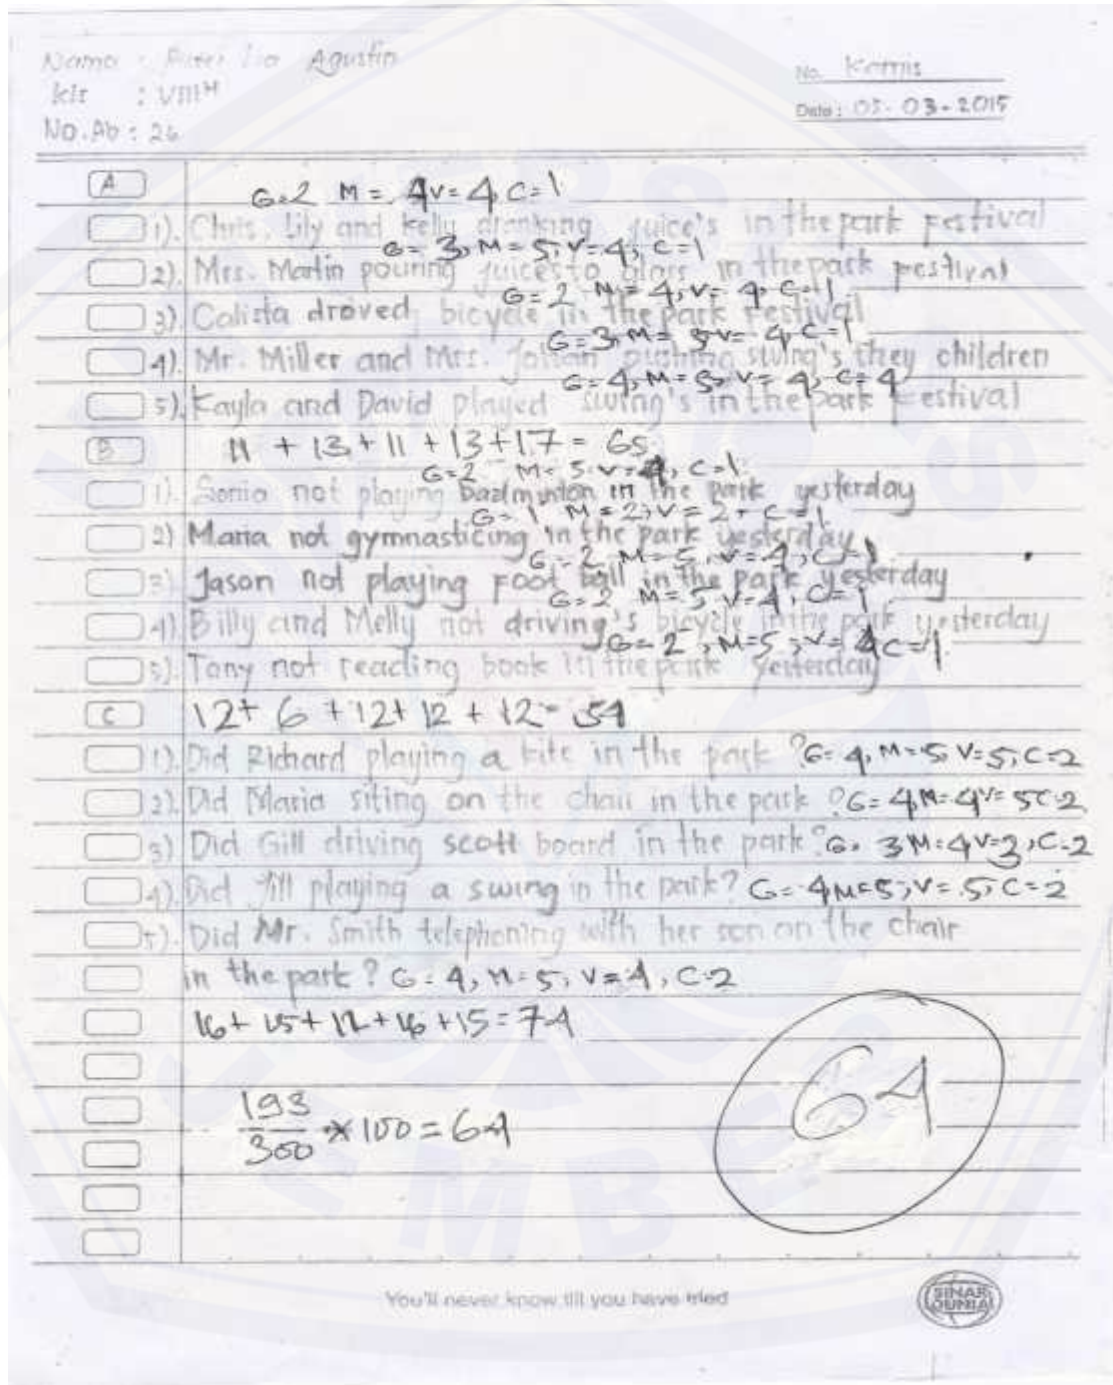 Nama : Agustin
No. Kamis
Kls : VIII H
Date : 05 - 03 - 2015
No. Ab : 26
A
G=2 M = 4 V= 4, C=1
1). Chris, Lily and Kelly drinking juice's in the park Festival
G= 3, M = 5, V=4, C=1
2). Mrs. Martin pouring juices to glass in the park Festival
G= 2 M = 4, V= 4, C=1
3). Calista droved bicycle in the park Festival
G= 3, M= 5 V= 4, C=1
4). Mr. Miller and Mrs. pushing swing's they children
G= 4, M = 5, V= 4, C= 4
5). Kayla and David played swing's in the park Festival
B
11 + 13 + 11 + 13 + 17 = 65
G=2 M= 5 V=4, C=1
1). Sonia not playing badminton in the park yesterday
G= 1 M = 2, V = 2, C=1
2) Maria not gymnasticing in the park yesterday
G= 2, M = 5, V=4, C=1
3). Jason not playing Foot ball in the park yesterday
G= 2 M= 5 V=4, C=1
4). Billy and Melly not driving's bicycle in the park yesterday
G= 2, M=5, V= 4 C=1
5). Tony not reading book in the park yesterday
C
12+ 6 + 12+ 12 + 12 = 54
1). Did Richard playing a kite in the park ? G= 4, M= 5, V=5, C=2
2). Did Maria siting on the chair in the park ? G= 4, M= 4 V= 5 C=2
3). Did Gill driving scott board in the park? G= 3 M=4 V=3, C=2
4). Did Jill playing a swing in the park? G= 4 M=5, V= 5, C=2
5). Did Mr. Smith telephoning with her son on the chair
in the park ? G = 4, M= 5, V=4, C=2
16+ 15 + 12 + 16 + 15 = 74
193
300 × 100 = 64
64
You'll never know till you have tried
SINAR
DUNIA